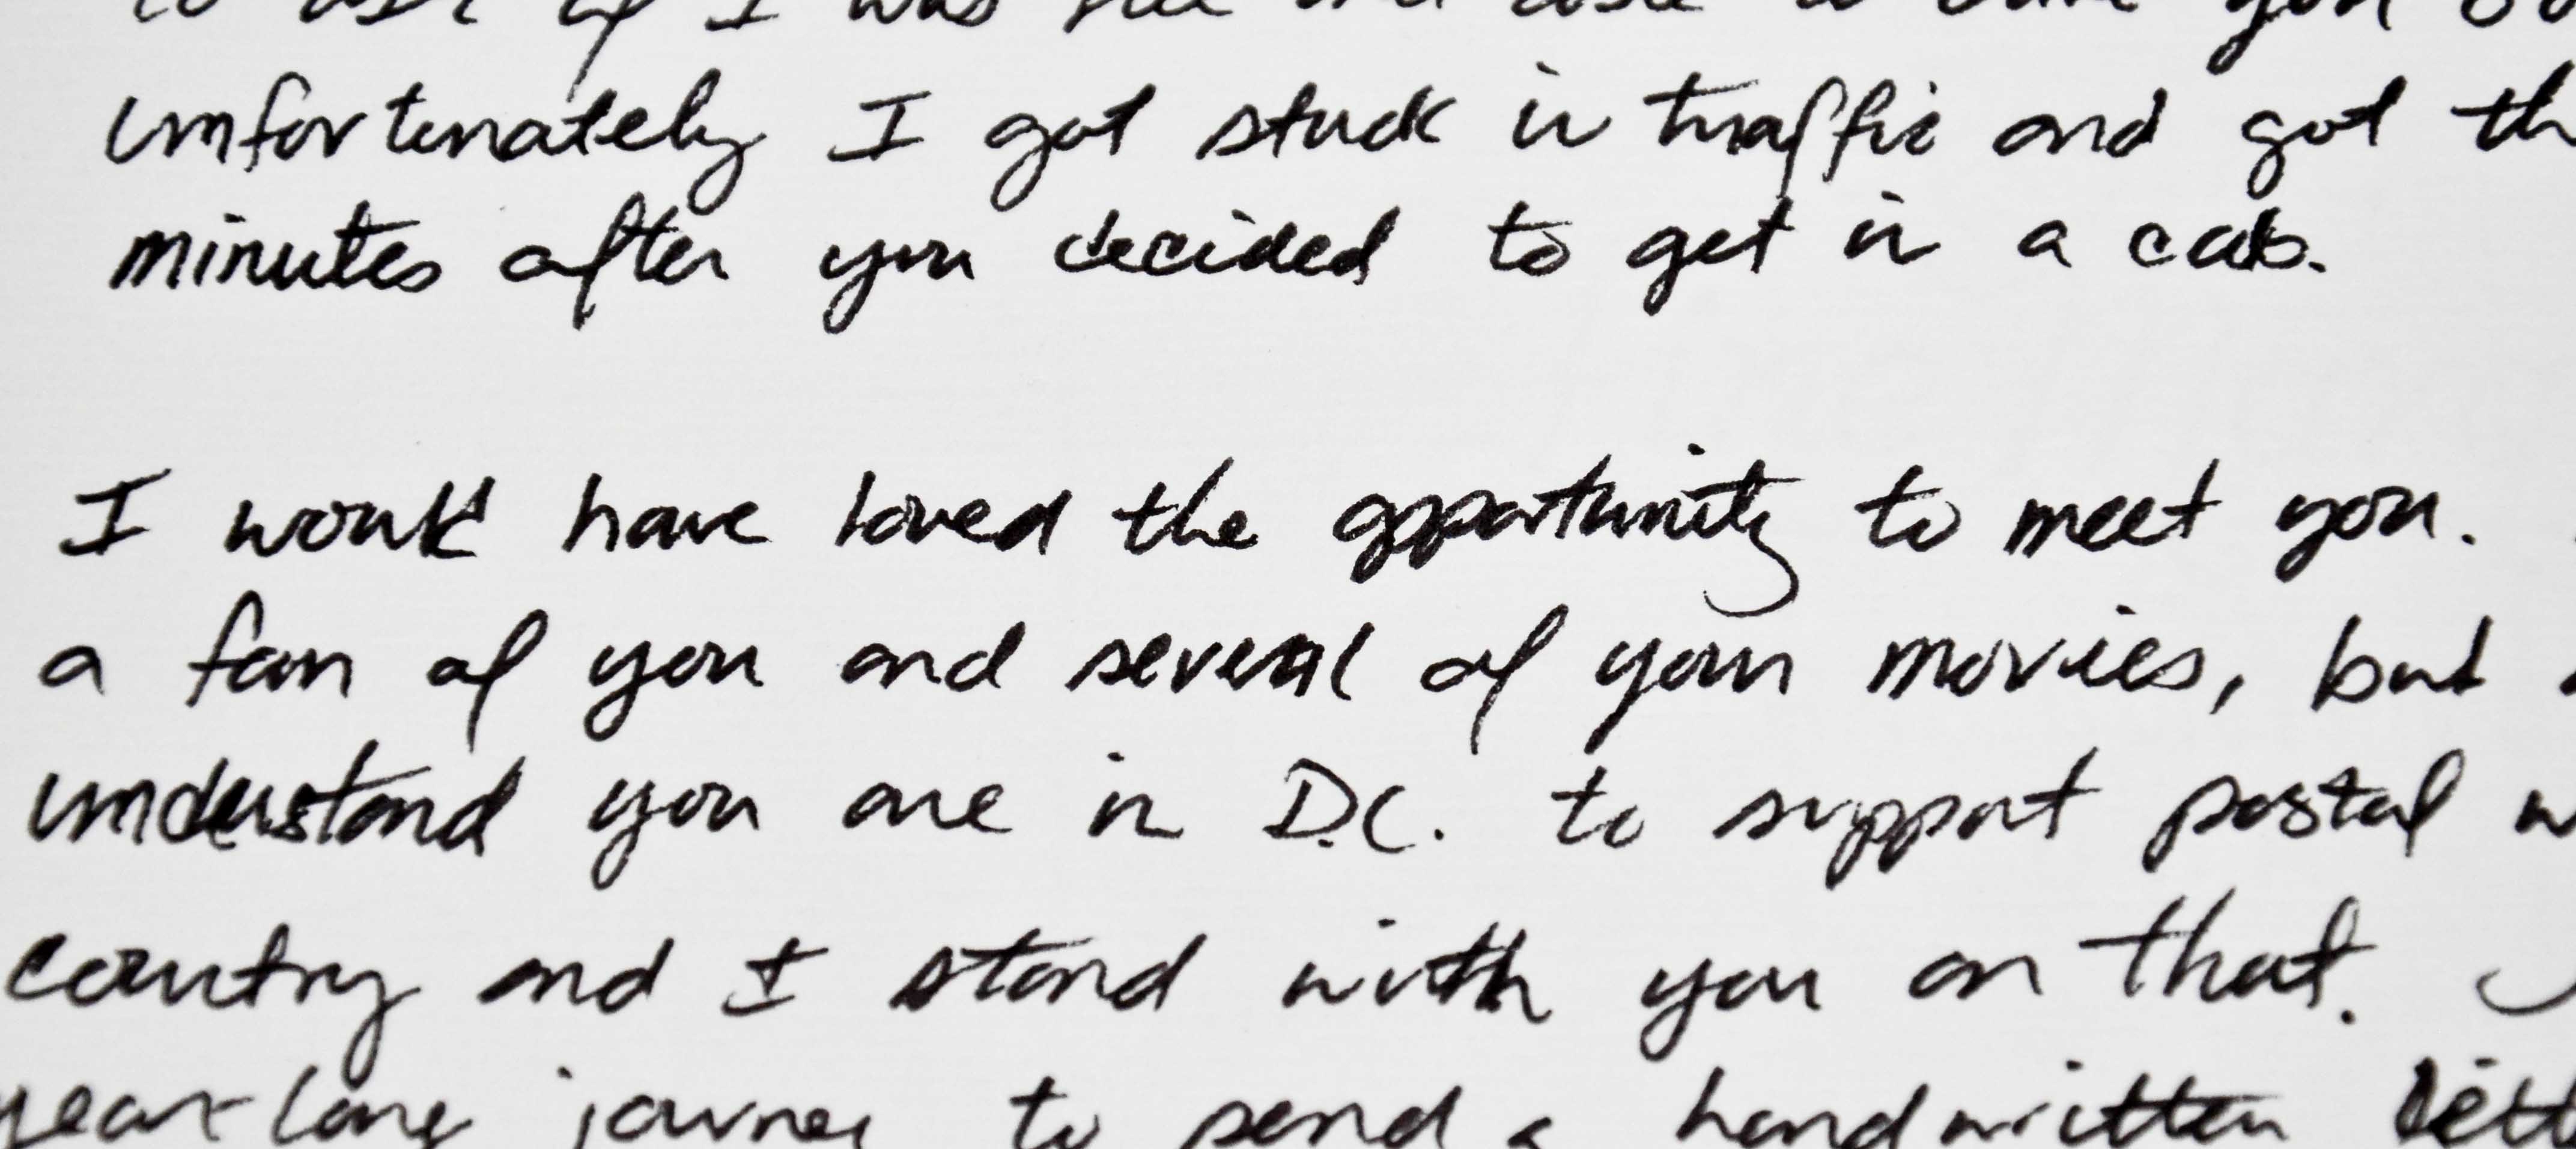 to ask if I was free and able to drive you
Unfortunately I got stuck in traffic and got th
minutes after you decided to get in a cab.
I would have loved the opportunity to meet you.
a fan of you and several of your movies, but
understand you are in D.C. to support postal w
country and I stand with you on that.
year-long journey to send a handwritten lett